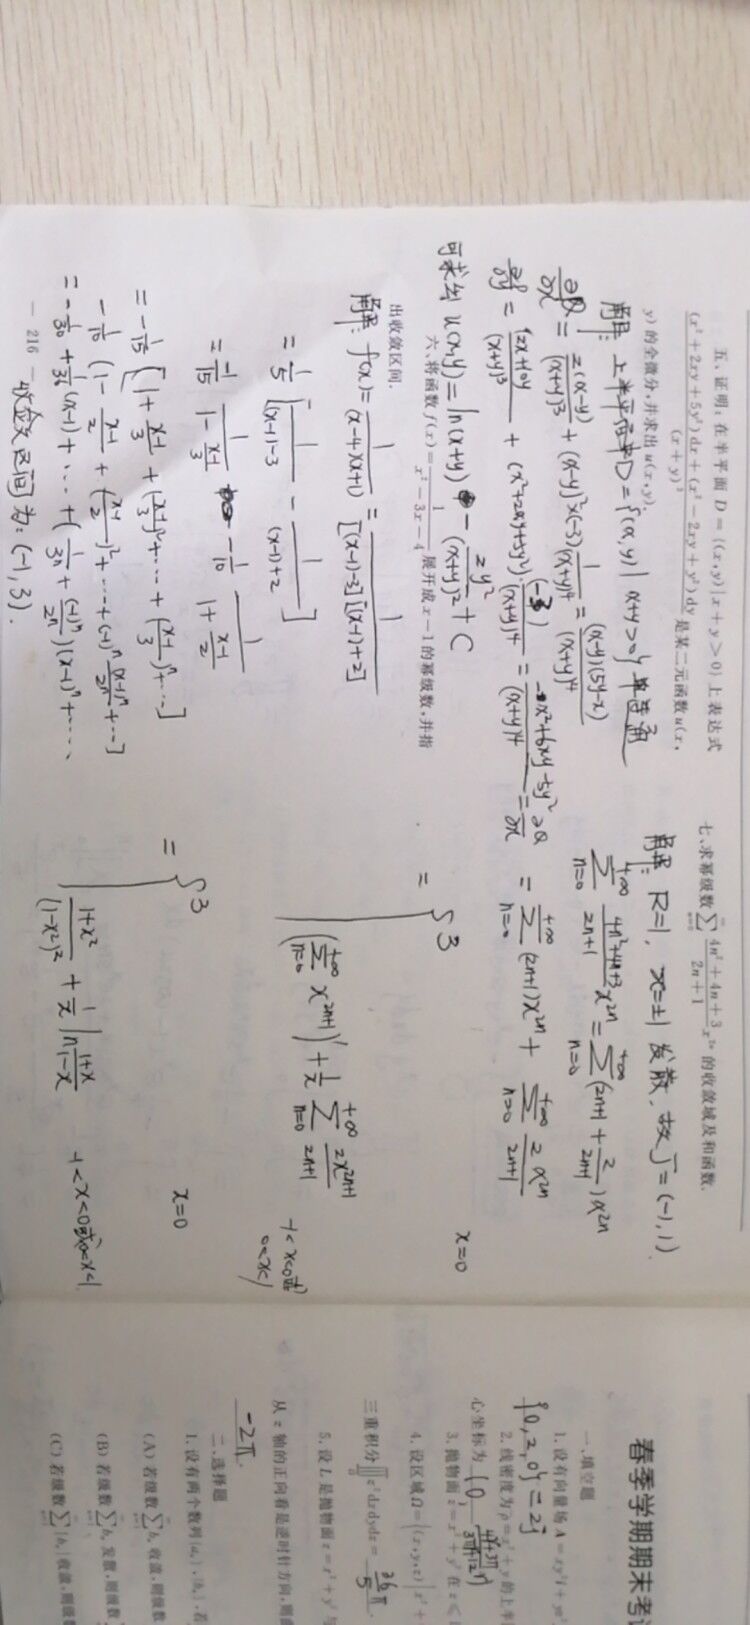 五、证明：在半平面 D={(x,y)|x+y>0} 上表达式
(x²+2xy+5y²)dx+(x²-2xy+y²)dy / (x+y)³ 是某二元函数 u(x,
y) 的全微分,并求出 u(x,y).
解: 上半平面 D={(x,y)| x+y>0} 单连通
∂Q/∂x = 2(x-y)/(x+y)³ + (x-y)²×(-3) 1/(x+y)⁴ = (x-y)(5y-x)/(x+y)⁴
= (2x+10y)/(x+y)³ + (x²+2xy+5y²)·(-3)/(x+y)⁴ = (-x²+6xy-5y²)/(x+y)⁴ = ∂Q/∂x
可求出 u(x,y)=ln(x+y) - 2y²/(x+y)² + C
六、将函数 f(x)=1/(x²-3x-4) 展开成 x-1 的幂级数,并指
出收敛区间.
解: f(x)= 1/(x-4)(x+1) = 1/[(x-1)-3][(x-1)+2]
= 1/5 [1/((x-1)-3) - 1/((x-1)+2)]
= -1/15 1/(1-(x-1)/3) - 1/10 1/(1+(x-1)/2)
= -1/15 [1+(x-1)/3+((x-1)/3)²+⋯+((x-1)/3)ⁿ+⋯]
-1/10 (1-(x-1)/2+((x-1)/2)²+⋯+(-1)ⁿ(x-1)ⁿ/2ⁿ+⋯]
= -1/30 + 1/36(x-1)+⋯+(1/3ⁿ+(-1)ⁿ/2ⁿ)(x-1)ⁿ+⋯⋯
— 216 —
收敛区间为: (-1,3).
七、求幂级数 ∑(n=0,∞) (4n²+4n+3)/(2n+1) x²ⁿ 的收敛域及和函数.
解: R=1, x=±1 发散, 故 J=(-1,1)
∑(n=0,+∞) (4n²+4n+3)/(2n+1) x²ⁿ = ∑(n=0,+∞) (2n+1+2/(2n+1))x²ⁿ
= ∑(n=0,+∞) (2n+1)x²ⁿ + ∑(n=0,+∞) 2x²ⁿ/(2n+1)
= { 3 x=0
(∑(n=0,+∞) x²ⁿ⁺¹)′ + 1/x ∑(n=0,+∞) 2x²ⁿ⁺¹/(2n+1) -1<x<0或
0<x<1
= { 3 x=0
(1+x²)/(1-x²)² + 1/x ln (1+x)/(1-x) -1<x<0或0<x<1
春季学期期末考
一、填空题
1. 设有向量场 A=
{0,2,0}=2j
2. 线密度为 ρ=x²+y 的上半
心坐标为
3. 抛物面 z=x²+y² 在 z≤
4. 设区域 Ω={(x,y,z)|x²+
三重积分∭z²dxdydz= 36/5 π
5. 设 L 是抛物面 z=x²+y² 与
从 z 轴的正向看是逆时针方向,则
-2π.
二、选择题
1. 设有两个数列{aₙ},{bₙ},若
(A) 若级数∑bₙ收敛,则级数
(B) 若级数∑bₙ发散,则级数
(C) 若级数∑|bₙ|收敛,则级数